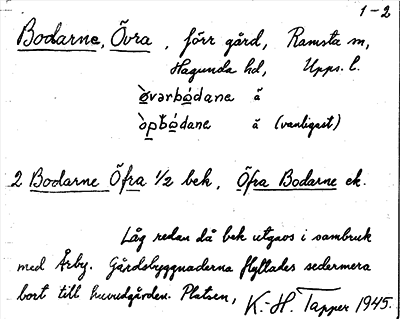 1-2
Bodarne, Övra, förr gård, Ramsta sn,
Hagunda hd, Upps. l.
øvərbódane ă
òpbódane ă (vanligast)
2 Bodarne Öfra 1/2 bek, Öfra Bodarne ek.
Låg redan då bek utgavs i sambruk
med Årby. Gårdsbyggnaderna flyttades sedermera
bort till huvudgården. Platsen,
K.-H. Tapper 1945.